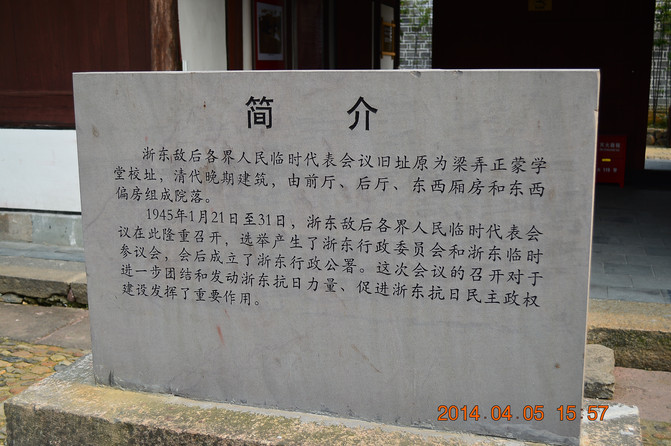 简 介
浙东敌后各界人民临时代表会议旧址原为梁弄正蒙学
堂校址，清代晚期建筑，由前厅、后厅、东西厢房和东西
偏房组成院落。
1945年1月21日至31日，浙东敌后各界人民临时代表会
议在此隆重召开，选举产生了浙东行政委员会和浙东临时
参议会，会后成立了浙东行政公署。这次会议的召开对于
进一步团结和发动浙东抗日力量、促进浙东抗日民主政权
建设发挥了重要作用。
2014.04.05 15:57